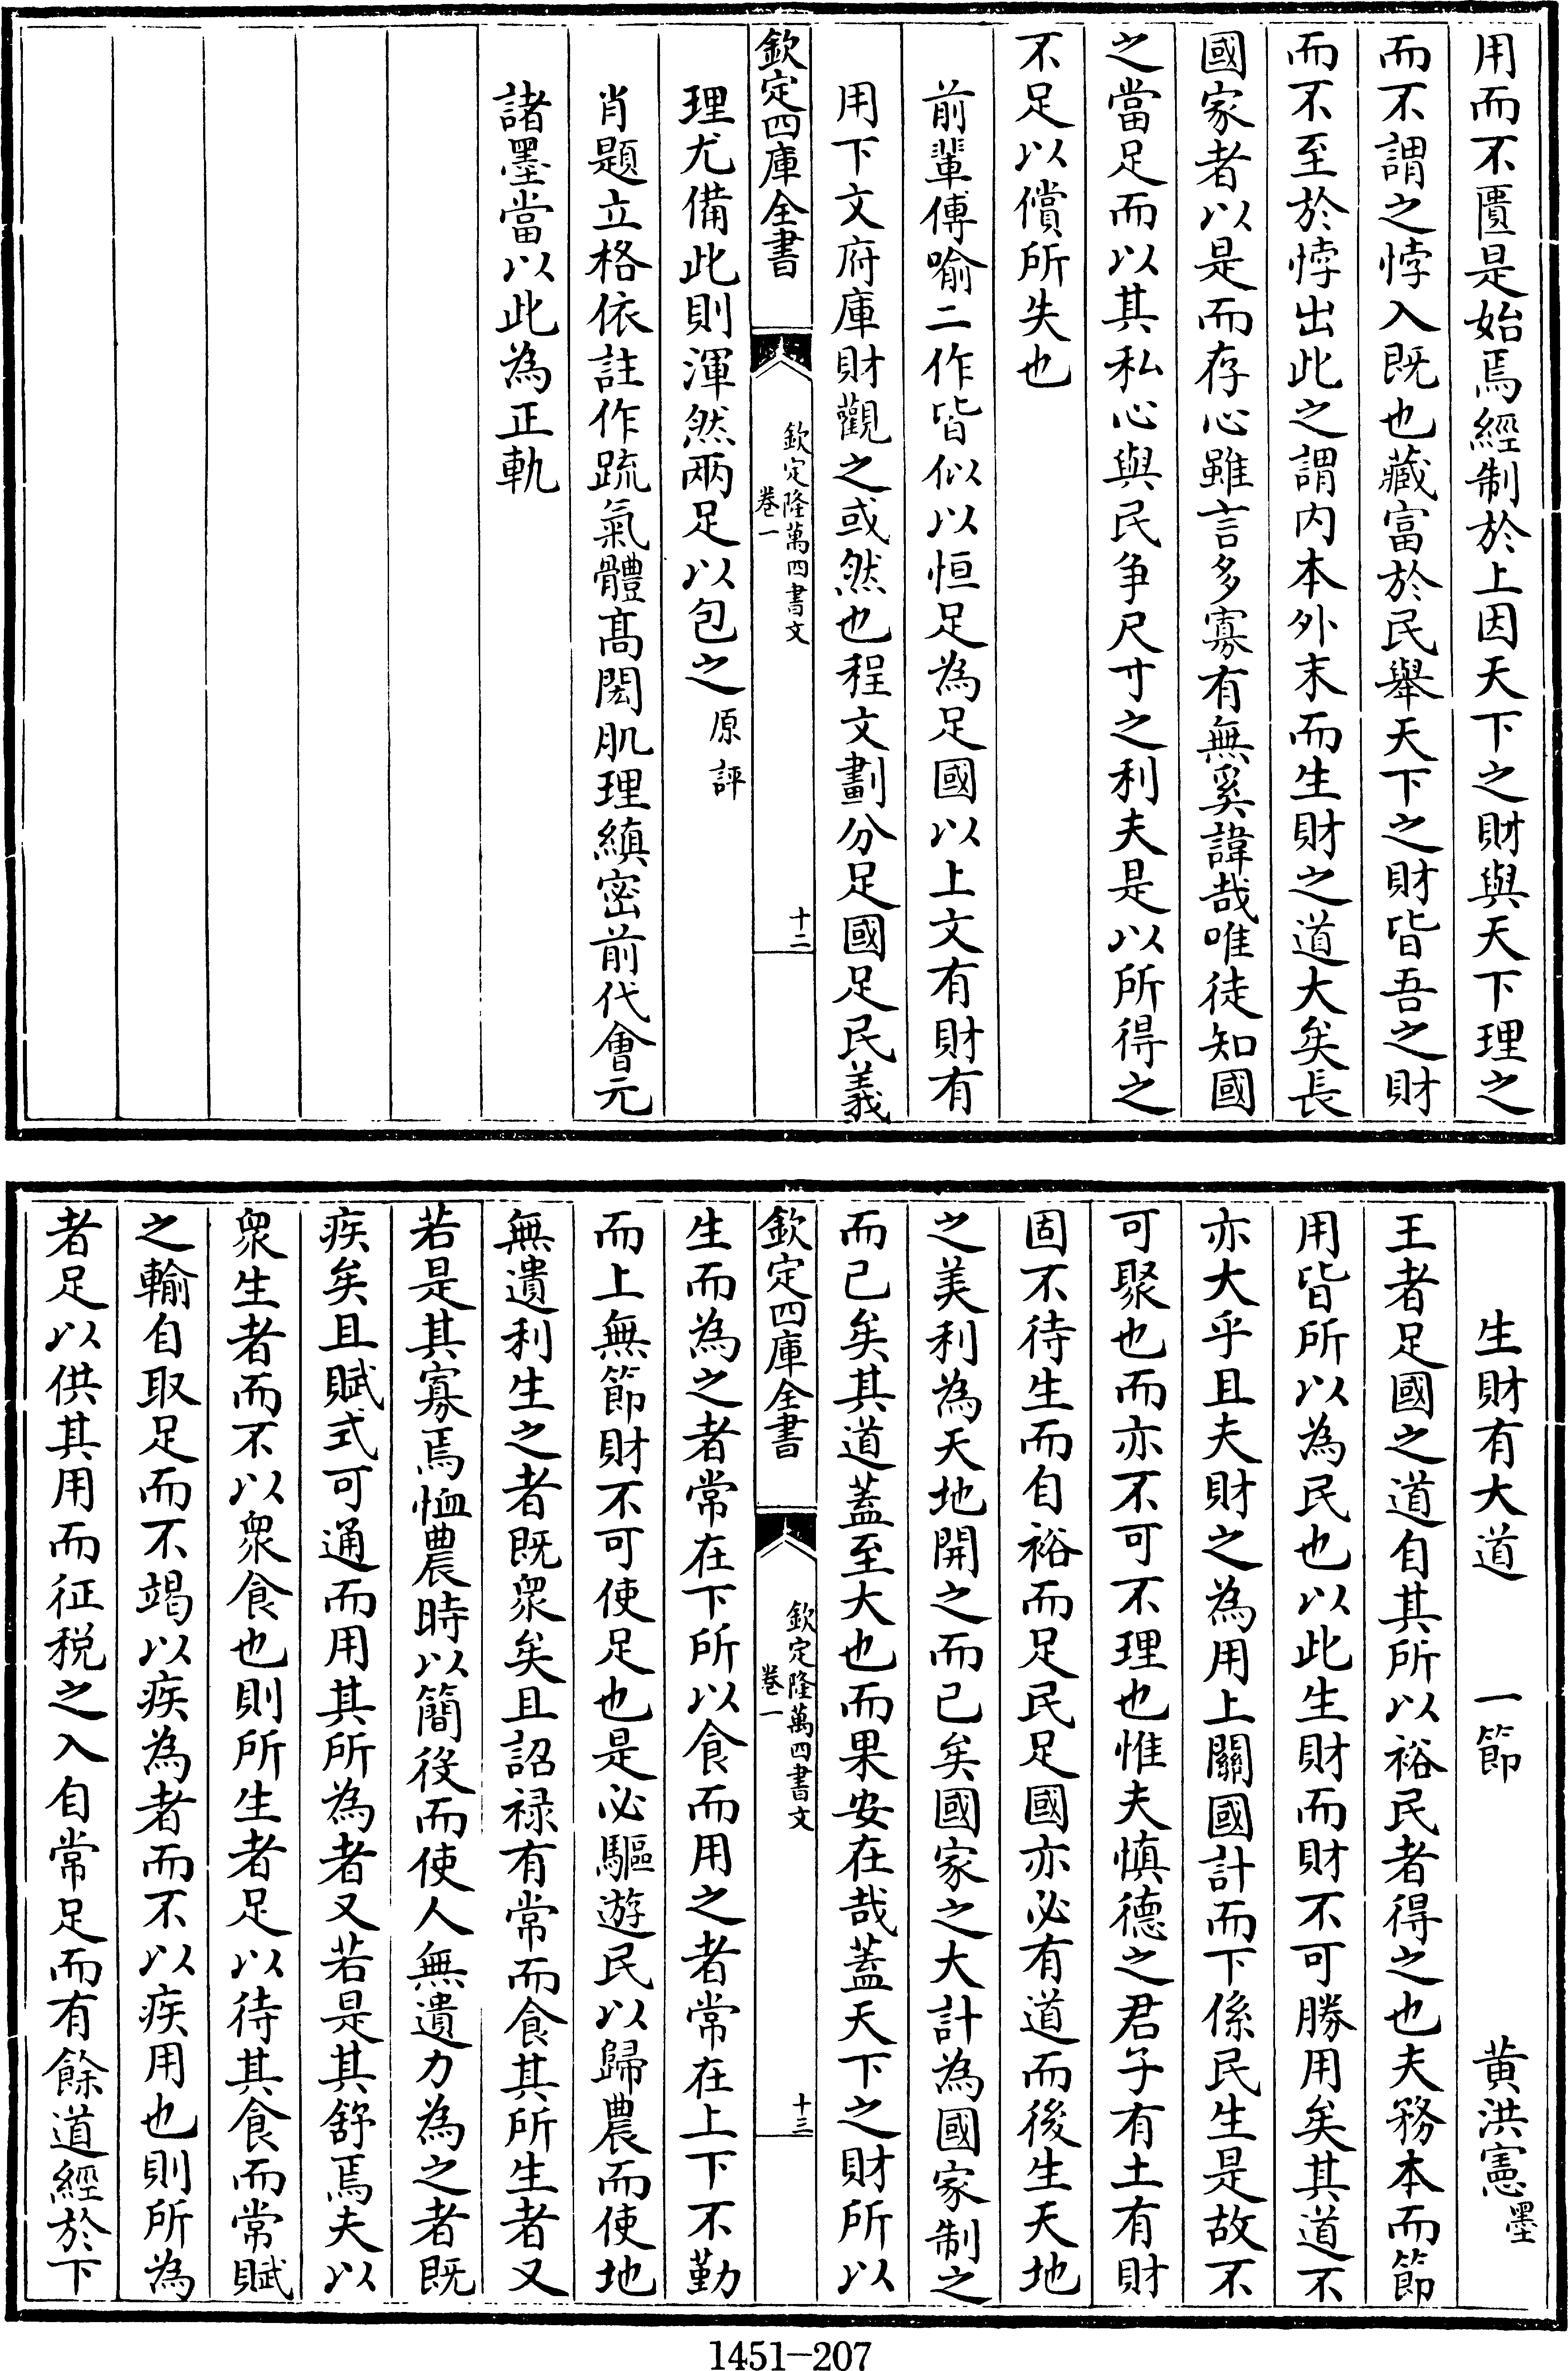 用而不匱是始焉經制於上因天下之財與天下理之
而不謂之悖入既也藏富於民舉天下之財皆吾之財
而不至於悖出此之謂内本外末而生財之道大矣長
國家者以是而存心雖言多寡有無奚諱哉唯徒知國
之當足而以其私心與民争尺寸之利夫是以所得之
不足以償所失也
前輩傅喻二作皆似以恒足為足國以上文有財有
用下文府庫財觀之或然也程文劃分足國足民義
欽定四庫全書
欽定隆萬四書文
卷一
十二
理尤備此則渾然兩足以包之原評
肖題立格依註作疏氣體髙閎肌理縝密前代會元
諸墨當以此為正軌
生財有大道 一節 黄洪憲墨
王者足國之道自其所以裕民者得之也夫務本而節
用皆所以為民也以此生財而財不可勝用矣其道不
亦大乎且夫財之為用上關國計而下係民生是故不
可聚也而亦不可不理也惟夫慎德之君子有土有財
固不待生而自裕而足民足國亦必有道而後生天地
之美利為天地開之而已矣國家之大計為國家制之
而已矣其道蓋至大也而果安在哉蓋天下之財所以
欽定四庫全書
欽定隆萬四書文
卷一
十三
生而為之者常在下所以食而用之者常在上下不勤
而上無節財不可使足也是必驅遊民以歸農而使地
無遺利生之者既衆矣且詔禄有常而食其所生者又
若是其寡焉恤農時以簡役而使人無遺力為之者既
疾矣且賦式可通而用其所為者又若是其舒焉夫以
衆生者而不以衆食也則所生者足以待其食而常賦
之輸自取足而不竭以疾為者而不以疾用也則所為
者足以供其用而征税之入自常足而有餘道經於下
1451—207